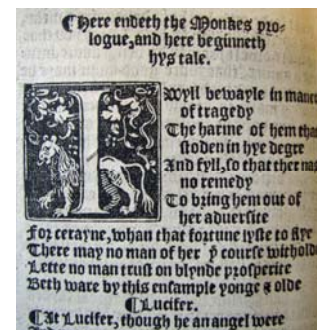 ¶Here endeth the Monkes pro-
logue, and here beginneth
hys tale.
I Wyll bewayle in maner
of tragedy
The harme of hem that
stoden in hye degre
And fyll, so that ther nas
no remedy
To bring hem out of
her aduersite
For certayne, whan that fortune lyste to flye
There may no man of her yͤ course witholde
Lette no man trust on blynde prosperite
Beth ware by this ensample yonge & olde
¶Lucifer.
At Lucifer, though he an angel were